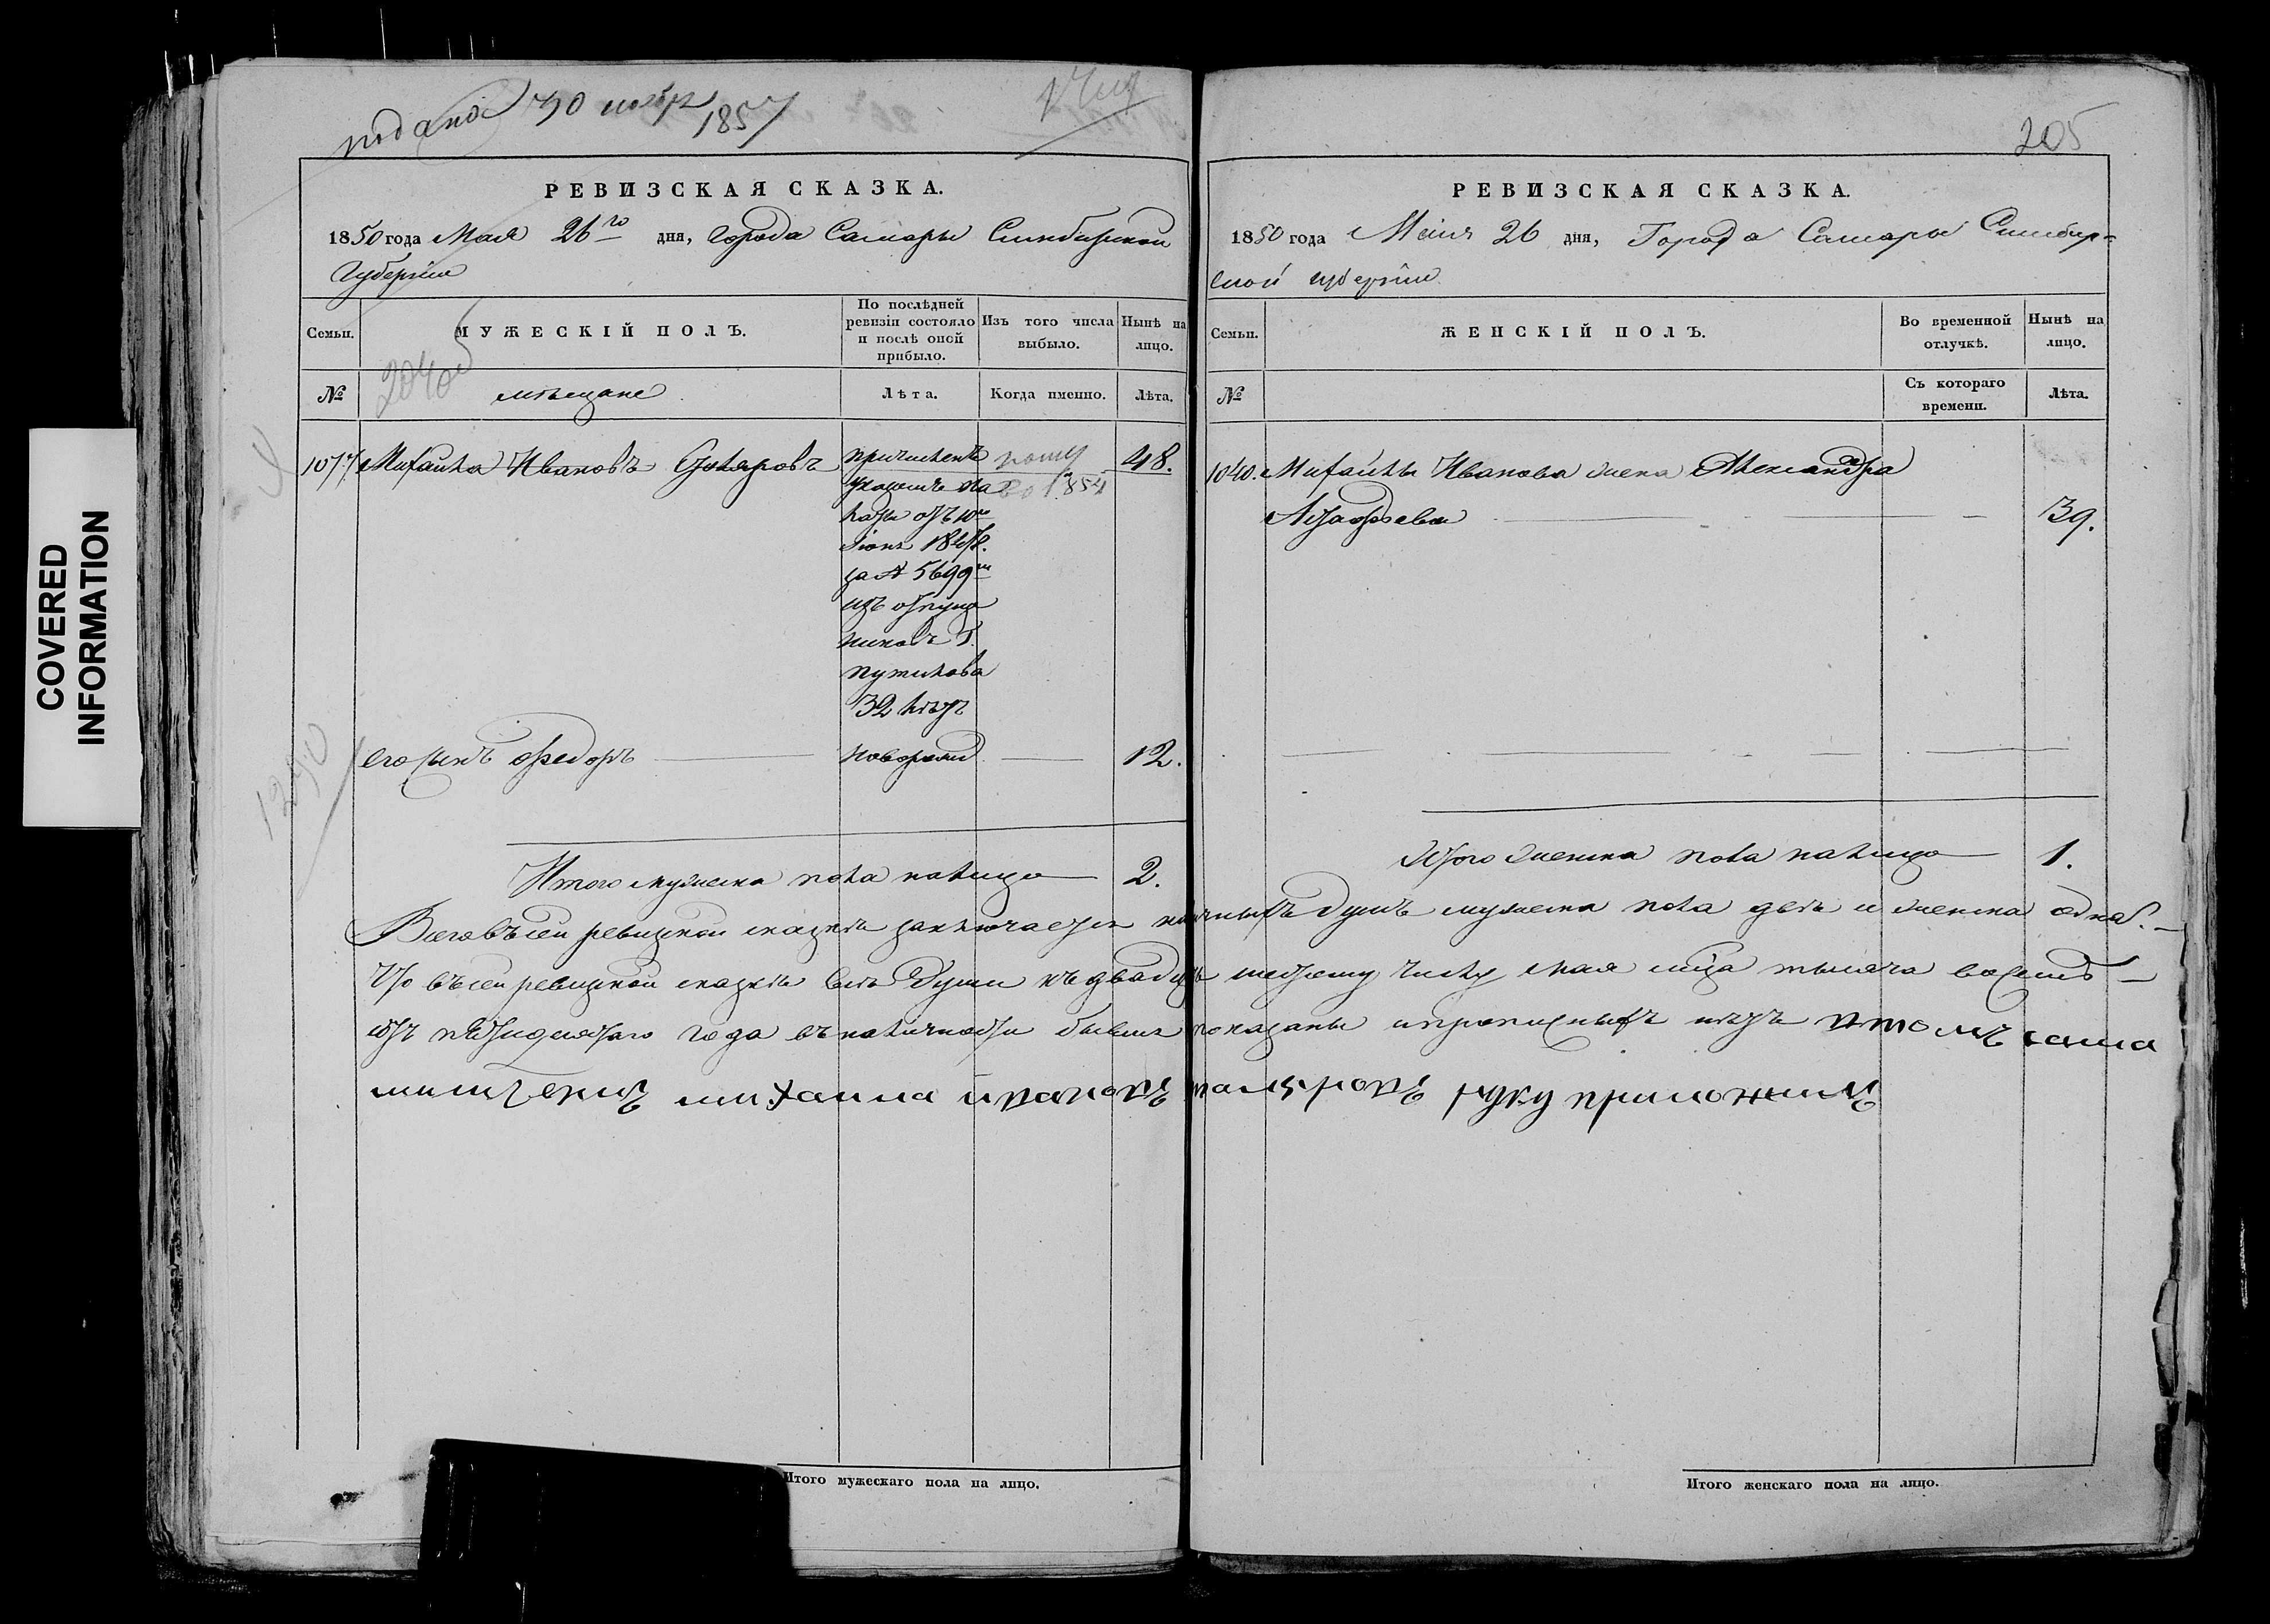 COVERED
INFORMATION
подана 30 ноябр 1857
205
РЕВИЗСКАЯ СКАЗКА.
1850 года Мая 26го дня, Города Самары Симбирской
Губерніи
Семьи.
МУЖЕСКІЙ ПОЛЪ.
По послѣдней ревизіи состояло и послѣ оной прибыло.
Изъ того числа выбыло.
Нынѣ на лицо.
№
мѣщане
Лѣта.
Когда именно.
Лѣта.
Михайла Ивановъ Столяровъ
причисленъ
указомъ па
латы отъ 10го
за № 5699м
изъ отпуще
никовъ Г.
Путилова
32 лѣтъ
1854
48.
его сынъ Федоръ
новорожд
12.
Итого мужеска пола налицо 2.
РЕВИЗСКАЯ СКАЗКА.
1850 года Маія 26 дня, Города Самары Симбир-
ской губерніи
Семьи.
ЖЕНСКІЙ ПОЛЪ.
Во временной отлучкѣ.
Нынѣ на лицо.
№
Съ котораго времени.
Лѣта.
1040. Михайлы Иванова жена Александра
39.
Итого женска пола налицо 1.
Всего въ сей ревизкой сказкѣ заключается наличныхъ душъ мужеска пола двѣ и женска одна.
Что въ сей ревизкой сказкѣ всѣ души къ двадцать шестому числу мая мца тысяча восемь
сотъ пѣтидесятаго года въ наличности бывшия показаны и прописныхъ нѣтъ в томъ сама
михаила ивановъ руку приложилъ
Итого мужескаго пола на лицо.
Итого женскаго пола на лицо.